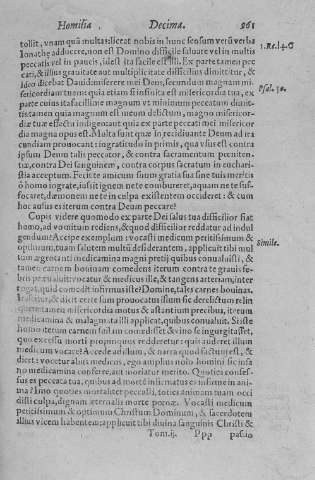 Homilia Decima. 261
tollit, vnam quā multas: licet nobis in hunc sensum verū verba
Ionathę adducere, non est Domino difficile saluare vel in multis
peccatis vel in paucis, idest ita facile est illi. Ex parte tamen pec
cati, & illius grauitate aut multiplicitate difficilius dimittitur, &
ideo dicebat Dauid: miserere mei Deus, secundum magnam mi-
sericordiam tuam: quia etiam si infinita est misericordia tua, ex
parte cuius ita facillime magnum vt minimum peccatum dimit-
tis: tamen quia magnum est meum delictum, magno misericor-
diæ tuæ effectu indigeo: at quia ex parte peccati mei misericor
dia magna opus est. Multa sunt quæ in recidiuante Deum ad ira
cundiam prouocant: ingratitudo in primis, qua vsus est contra
ipsum Deum talis peccator, & contra sacramentum pœniten-
tiæ, contra Dei sanguinem, contra corpus sacratum in euchari-
stia acceptum. Fecit te amicum suum gratia sua sine tuis meritis
ô homo ingrate, iussit ignem ne te combureret, aquam ne te suf-
focaret, dæmonem ne te in culpa existentem occideret: & cum
hoc ausus es iterum contra Deum peccare?
Cupis videre quomodo ex parte Dei salus tua difficilior fiat
homo, ad vomitum rediens, & quod difficilior reddatur ad indul
gendum? Accipe exemplum: vocasti medicum peritissimum &
optimum, tuam salutem multū desiderantem, applicuit tibi mul
tum ægrotanti medicamina magni pretij quibus conualuisti, &
tamen carnem bouinam comedens iterum contra te grauis fe-
bris
rogat, quid comedit infirmus iste? Domine, tales carnes bouinas.
& dicit certe sum prouocatus iussum sic derelictum relin
misericordia motus & astantium precibus, iterum
medicamina & malagmata illi applicat, quibus conualuit. Si iste
homo iterum carnem suillam comedisset & vino se ingurgitasset,
quo excessu morti propinquus redderetur: quis auderet illum
medicum vocare? Accede ad illum, & narra quod factum est, &
dicet: vocetur alius medicus, ego amplius nolo homini sic insa
no medicamina conferre, aut moriatur merito. Quoties confes-
sus es peccata tua, quibus ad mortē infirmatus es infirme in ani-
ma? Imo quoties mortaliter peccasti, toties animam tuam occi
disti culpa, dignam æternalis morte pœnæ. Vocasti medicum
peritissimum & optimum Christum Dominum, & sacerdotem
illius vicem habentem: applicuit tibi diuina sanguinis Christi &
Tom. ij. Ppp passio
1. Re. 14. 6
Psal. 50.
Simile.